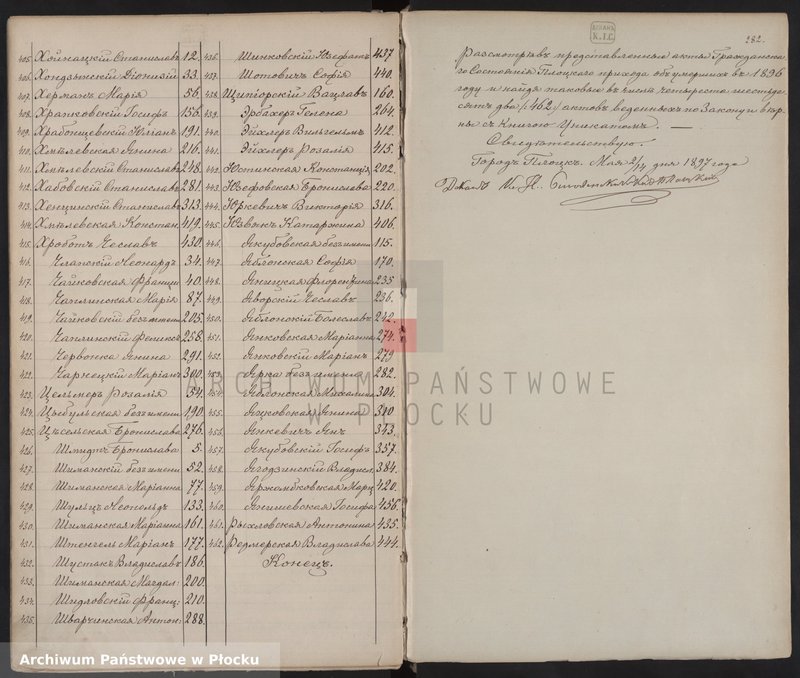 405. Хойнацкій Станиславъ 12.
406. Хондзынскій Діонизій 33.
407. Херманъ Марія 56.
408. Храпковскій Іосифъ 156.
409. Храбонщевскій Юліанъ 191.
410. Хмѣлевская Янина 216.
411. Хмѣлевскій Станиславъ 248.
412. Хабовскій Станиславъ 281
413. Хенцинскій Станиславъ 313.
414. Хмѣлевская Констан. 419.
415. Хроботъ Чеславъ 430.
416. Члапскій Леонардъ 34.
417. Чайковская Франци 40.
418. Чаплинская Марія 87.
419. Чайковскій безъ имени 205.
420. Чаплинскій Феликсъ 258.
421. Червонка Янина 291.
422. Чарнецкій Маріанъ 300.
423. Цельнеръ Розалія 54.
424. Цыбульская безъ имени 190.
425. Цѣсельская Бронислава 276.
426. Шмидтъ Бронислава 5.
427. Шиманскій безъ имени 52.
428. Шиманская Маріанна 77.
429. Шульцъ Леопольдъ 133.
430. Шиманская Маріанна 161.
431. Штенгель Маріанъ 177.
432. Шустакъ Владиславъ 186.
433. Шиманская Магдал: 200.
434. Шидловскій Франц: 210.
435. Шварчинская Антон: 288.
436. Шинковскій Юзефатъ 437
437. Шотовичъ Софія 440.
438. Щигорскій Вацлавъ 160.
439. Эрбахеръ Гелена 264.
440. Эйхлеръ Вильгельмъ 412.
441. Эйхлеръ Розалія 415.
442. Юстинская Констанція 202.
443. Юзефовская Бронислава 220.
444. Юркевичъ Викторія 316.
445. Юзвякъ Катаржина 406.
446. Якубовская безъ имени 115.
447. Яблонская Софія 170.
448. Яницкая Флорентина 235
449. Яворскій Чеславъ 236.
450. Яблонскій Болеславъ 242.
451. Янковская Маріанна 274.
452. Янковскій Маріанъ 279
453. Ярка безъ имени 282.
454. Яблонская Михалина 304.
455. Яцковская Янина 340
456. Янкевичъ Янъ 343.
457. Якубовскій Іосифъ 357.
458. Ягодзинскій Владисл. 384.
459. Яржомбковская Марц 420.
460. Янишевская Іосифа 456.
461. Рыхловская Антонина 435.
462. Редмерская Владислава 444.
Конецъ.
282.
Разсмотрѣвъ представленные акты Гражданска
го Состоянія Плоцкаго прихода объ умершихъ въ 1896
году и найдя таковые въ числѣ четыреста шестьде
сятъ два (:462:) актовъ веденныхъ по Закону и вѣр
ны съ Книгою Уникатомъ. —
Свидѣтельствую.
Городъ Плоцкъ. Мая 2/14 дня 1897 года
Деканъ
K.I.C.
ARCHIWUM PAŃSTWOWE
W PŁOCKU
Archiwum Państwowe w Płocku